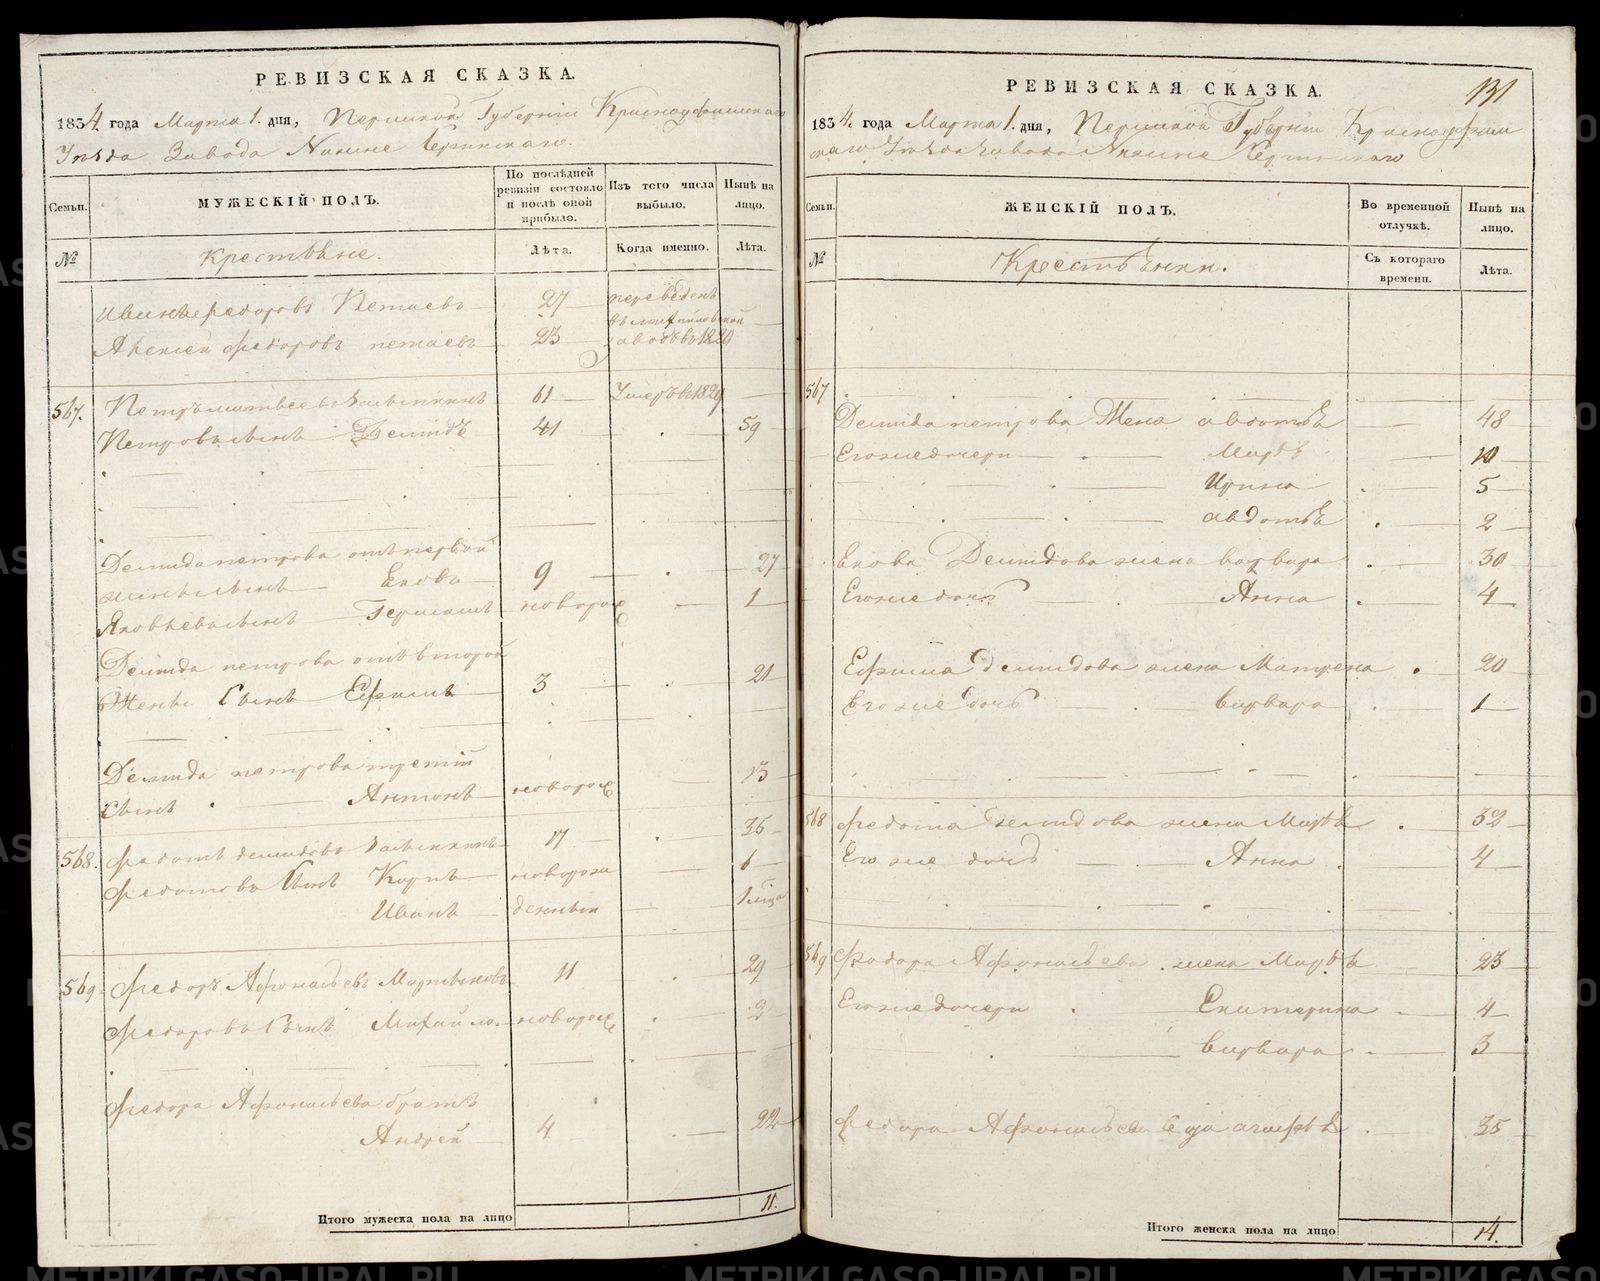 РЕВИЗСКАЯ СКАЗКА.
1834. года Марта 1. дня, Пермской Губернiи Красноуфимскаго
Уѣзда Завода Нижне Сергинскаго.
Семьи.
МУЖЕСКІЙ ПОЛЪ.
По послѣдней ревизіи состояло и послѣ оной прибыло.
Изъ того числа выбыло.
Нынѣ на лицо.
№
Крестьяне.
Лѣта.
Когда именно.
Лѣта.
Федоровъ 27 переведенъ
Алексей Федоровъ 23 1829
567. Петръ 61 Умеръ в 1829
Петровъ сынъ Демидъ 41 59
Демида петрова отъ первой
жены сынъ Екова 9 27
Яковлевъ сынъ Германъ новорож 1
Демида петрова отъ второй
Жены Сынъ Ефимъ 3 21
Демида петрова третiй
сынъ Антонъ новорож 13
568. Федотъ демидовъ 17 35
Федотовъ Сынъ Карпъ новорож 6
Иванъ денныи 1 мца
569 Федоръ Афонасьевъ Мартьяновъ 11 29
Федоровъ Сынъ Михайло новорож 2
Федора Афонасьева братъ
Андрей 4 22
Итого мужеска пола на лицо 11.
РЕВИЗСКАЯ СКАЗКА.
131
1834. года Марта 1. дня, Пермской Губернiи Красноуфим
скаго Уѣзда Завода Нижне Сергинскаго
Семьи.
ЖЕНСКІЙ ПОЛЪ.
Во временной отлучкѣ.
Нынѣ на лицо.
№
Крестьянки.
Съ котораго времени.
Лѣта.
567
Демида петрова Жена авдотья 48
Его же дочери Марфа 10
Ирина 5
авдотья 2
Екова Демидова жена варвара 30
Его же дочь Анна 4
Ефима демидова жена Матрена 20
Его же дочь варвара 1
568 Федота демидова жена Марфа 32
Его же дочь Анна 4
569 Федора Афонасьева жена Марфа 23
Его же дочери Екатерина 4
варвара 3
Федора Афонасьева 35
Итого женска пола на лицо 14.
METRIKI.GASO-URAL.RU